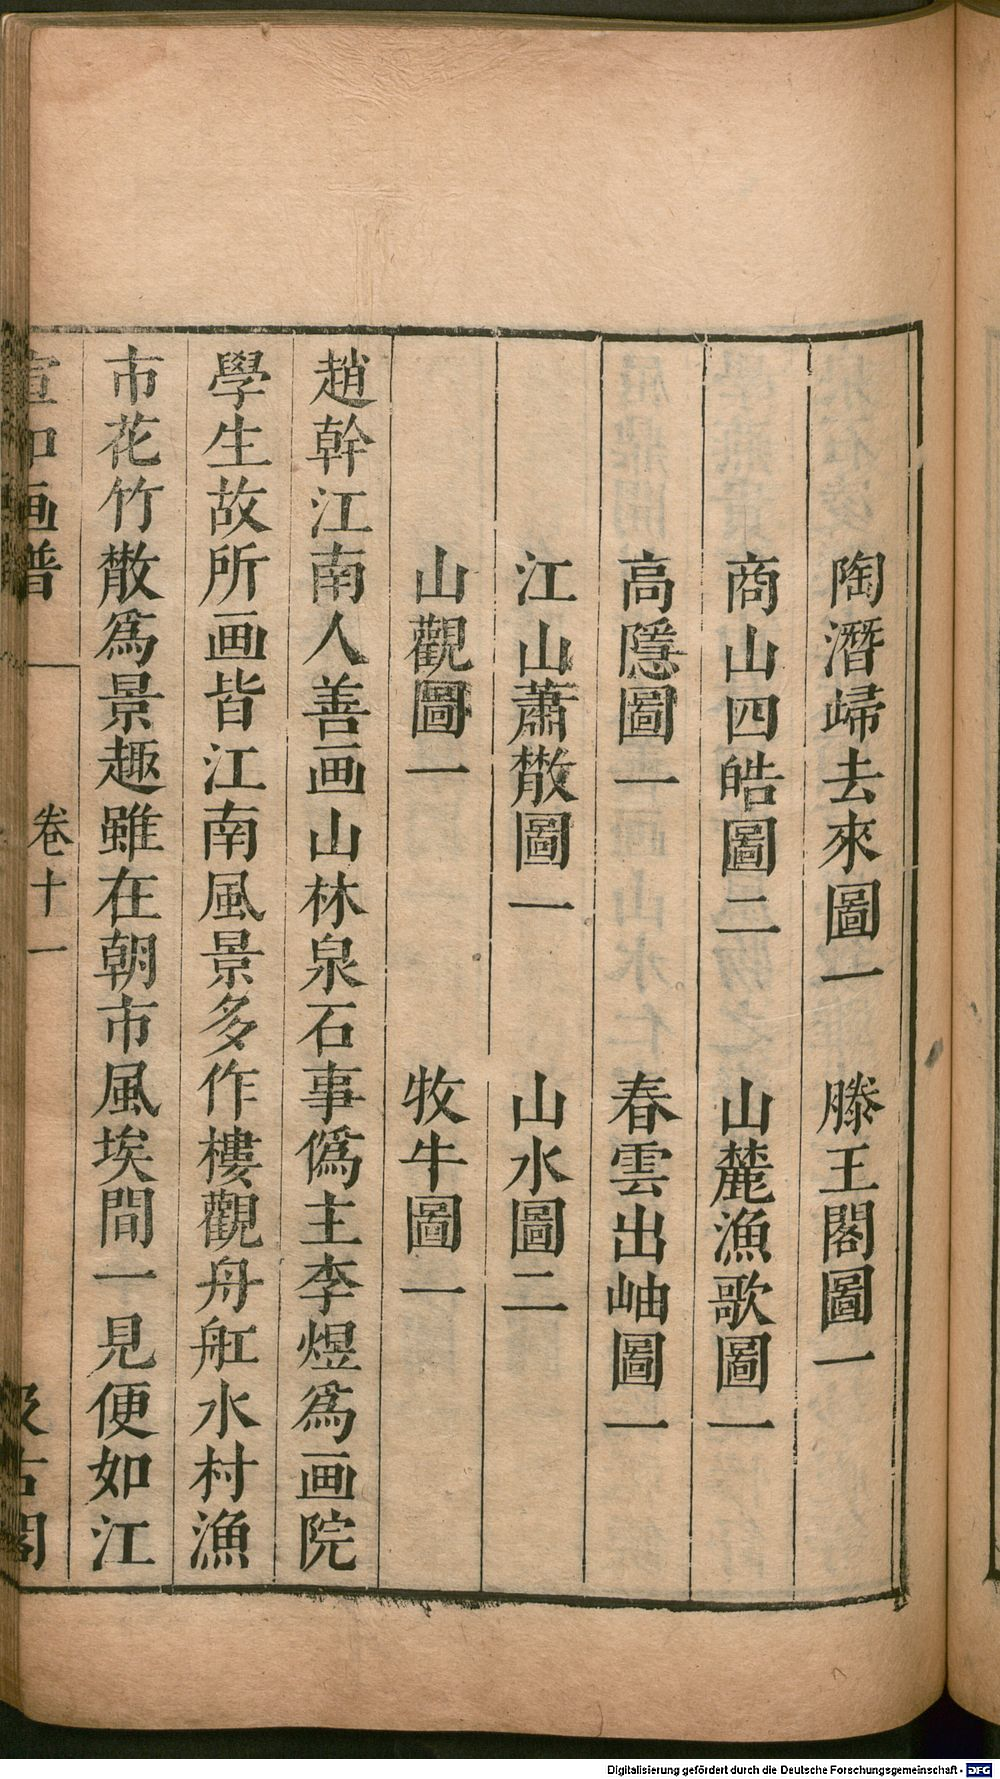 陶潛歸去來圖一　滕王閣圖一
商山四皓圖二　山麓漁歌圖一
高隱圖一　春雲出岫圖一
江山蕭散圖一　山水圖二
山觀圖一　牧牛圖一
趙幹江南人善画山林泉石事僞主李煜爲画院
學生故所画皆江南風景多作樓觀舟舡水村漁
市花竹散爲景趣雖在朝市風埃間一見便如江
宣和画譜　卷十一　汲古閣
Digitalisierung gefördert durch die Deutsche Forschungsgemeinschaft - DFG